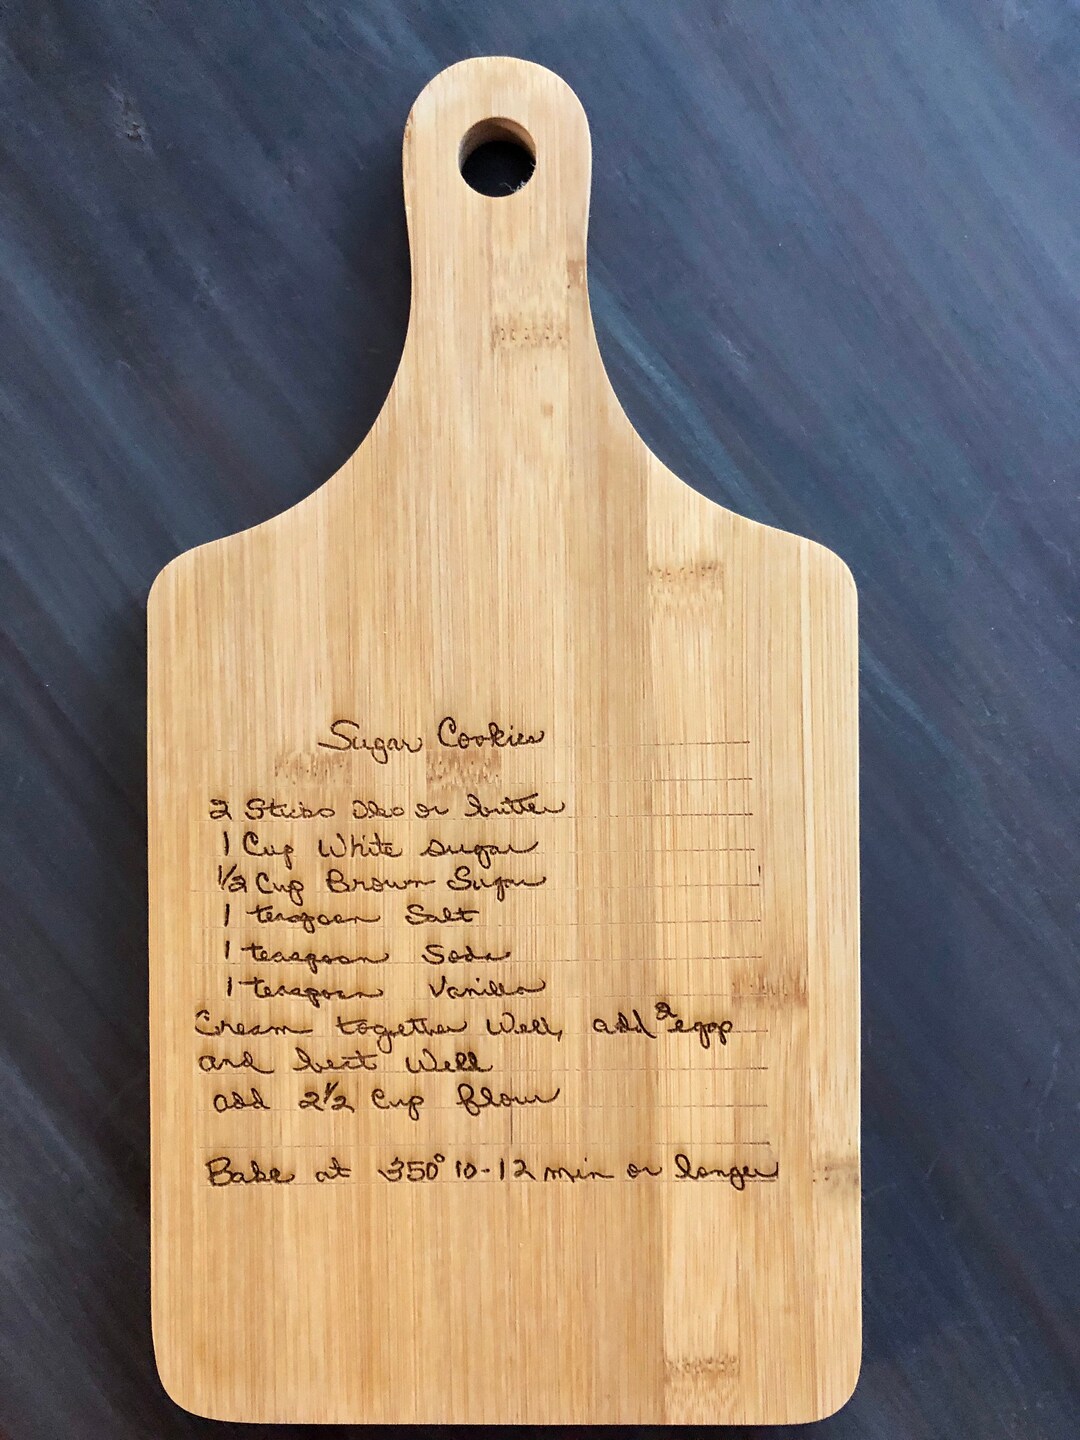 Sugar Cookies
2 Sticks Oleo or butter
1 Cup White Sugar
1/2 Cup Brown Sugar
1 teaspoon Salt
1 teaspoon Soda
1 teaspoon Vanilla
Cream together Well, add 2 eggs
and beat Well
add 2 1/2 Cup flour
Bake at 350° 10-12 min or longer